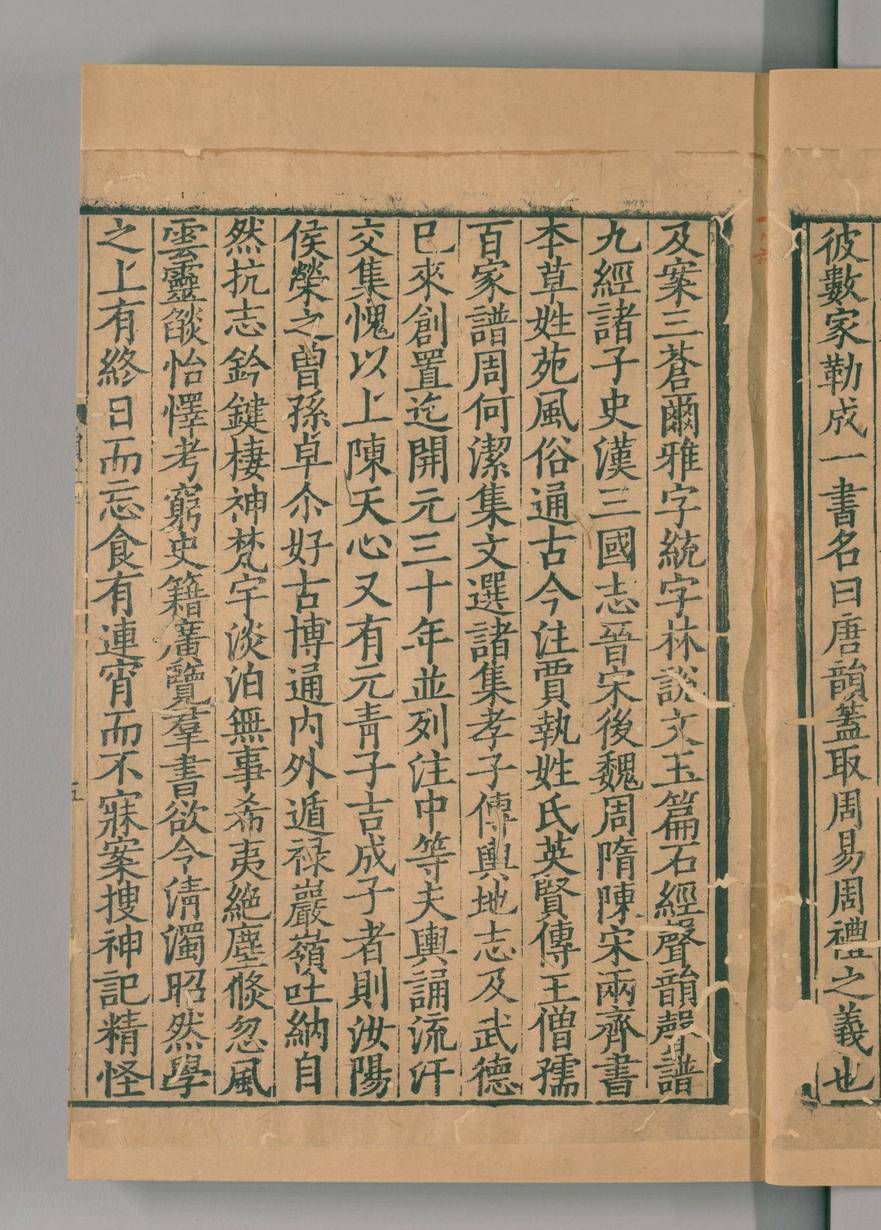 彼數家勒成一書名曰唐韻蓋取周易周禮之義也
及案三蒼爾雅字統字林說文玉篇石經聲韻聲譜
九經諸子史漢三國志晉宋後魏周隋陳宋兩齊書
本草姓苑風俗通古今注賈執姓氏英賢傳王僧孺
百家譜周何潔集文選諸集孝子傳輿地志及武德
已來創置迄開元三十年並列注中等夫輿誦流汗
交集愧以上陳天心又有元青子吉成子者則汝陽
侯榮之曾孫卓尒好古博通內外遁祿巖嶺吐納自
然抗志鈐鍵棲神梵宇淡泊無事希夷絕塵倐忽風
雲靈𦦨怡懌考窮史籍廣覽羣書欲令清濁昭然學
之上有終日而忘食有連宵而不寐案搜神記精怪
五